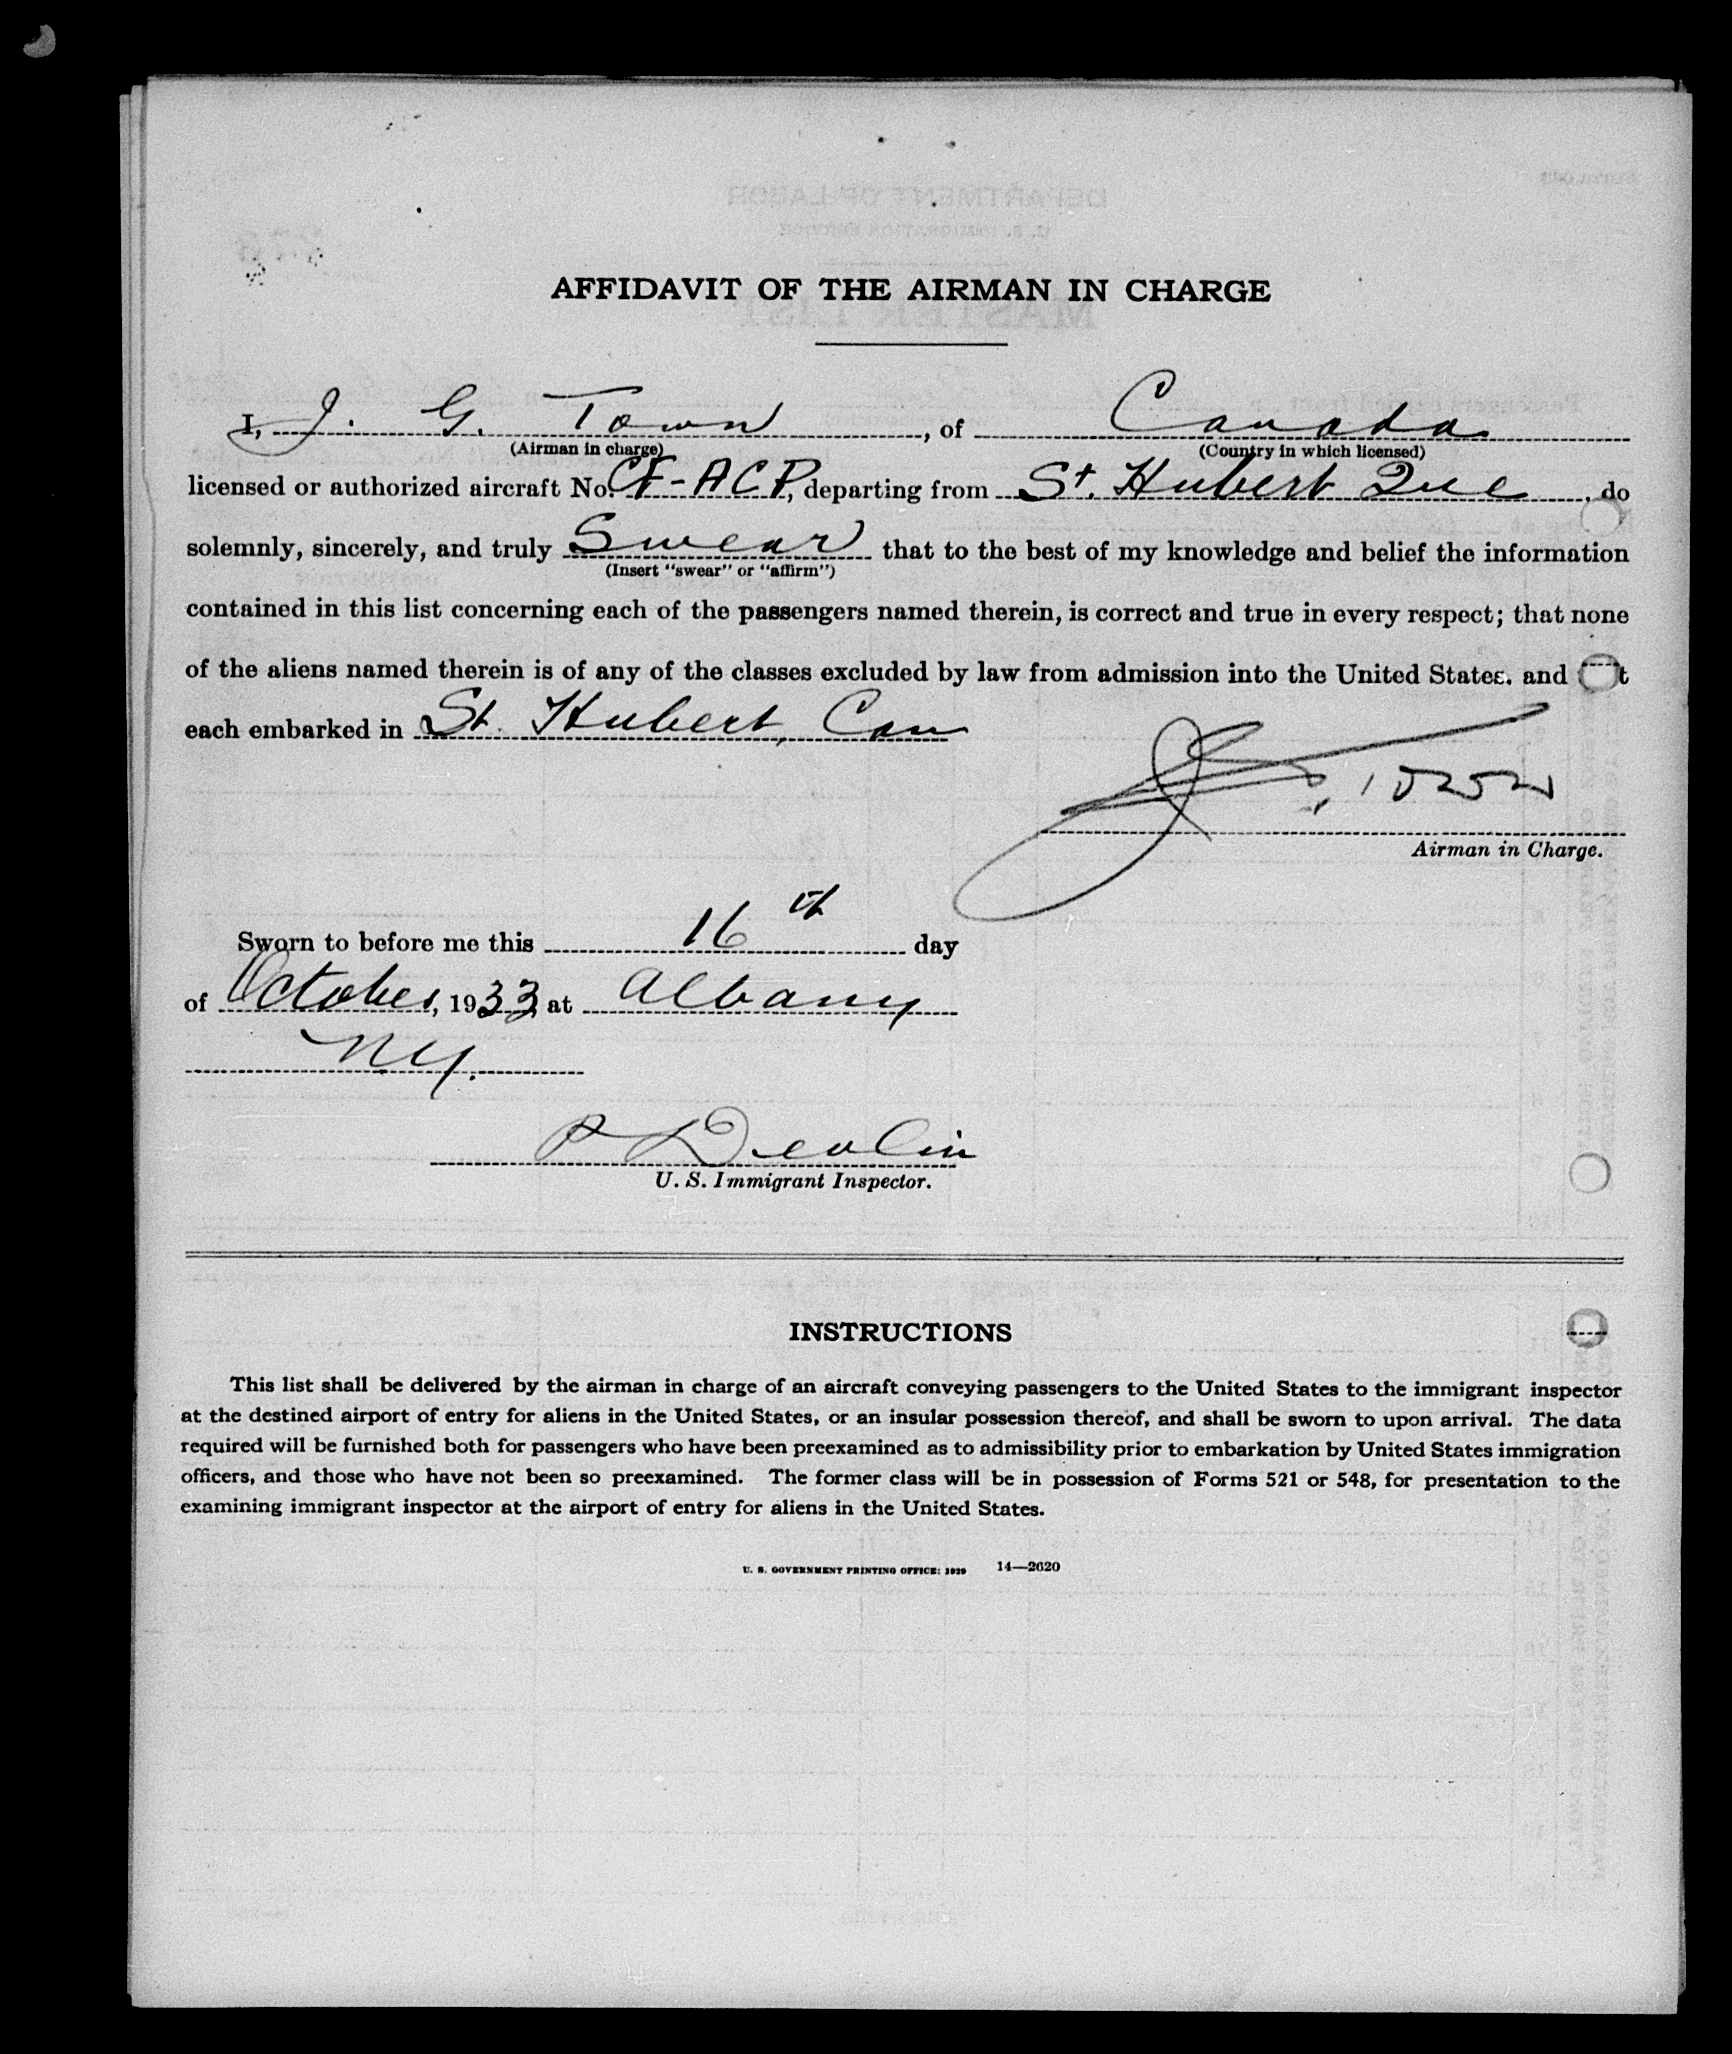 AFFIDAVIT OF THE AIRMAN IN CHARGE
I, J. G. Town, of Canada
(Airman in charge) (Country in which licensed)
licensed or authorized aircraft No. CF-ACP, departing from St. Hubert Que, do
solemnly, sincerely, and truly Swear that to the best of my knowledge and belief the information
(Insert "swear" or "affirm")
contained in this list concerning each of the passengers named therein, is correct and true in every respect; that none
of the aliens named therein is of any of the classes excluded by law from admission into the United States, and t
each embarked in St. Hubert, Can
J. G. Town
Airman in Charge.
Sworn to before me this 16th day
of October, 1933, at Albany
NY.
P Devlin
U. S. Immigrant Inspector.
INSTRUCTIONS
This list shall be delivered by the airman in charge of an aircraft conveying passengers to the United States to the immigrant inspector
at the destined airport of entry for aliens in the United States, or an insular possession thereof, and shall be sworn to upon arrival. The data
required will be furnished both for passengers who have been preexamined as to admissibility prior to embarkation by United States immigration
officers, and those who have not been so preexamined. The former class will be in possession of Forms 521 or 548, for presentation to the
examining immigrant inspector at the airport of entry for aliens in the United States.
U. S. GOVERNMENT PRINTING OFFICE: 1929 14—2620